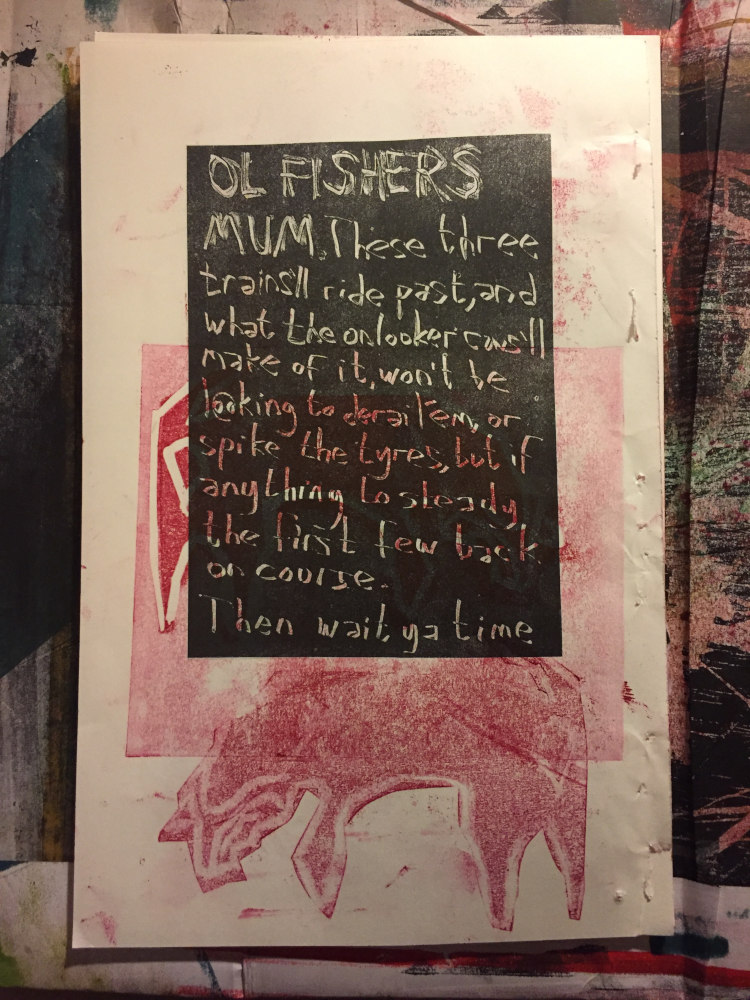 OL FISHERS
MUM. These three
trains'll ride past, and
what the onlooker cows'll
make of it, won't be
looking to derail 'em, or
spike the tyres, but if
anything to steady
the first few back
on course.
Then wait, ya time